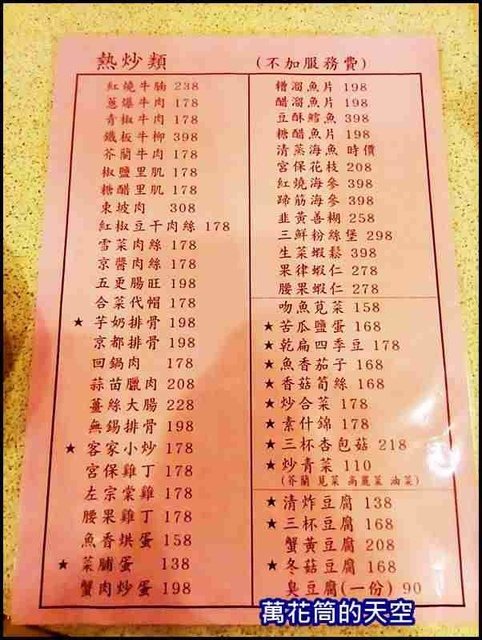 熱炒類
(不加服務費)
紅燒牛腩 238
蔥爆牛肉 178
青椒牛肉 178
鐵板牛柳 398
芥蘭牛肉 178
椒鹽里肌 178
糖醋里肌 178
東坡肉 308
紅椒豆干肉絲 178
雪菜肉絲 178
京醬肉絲 178
五更腸旺 198
合菜代帽 178
★ 芋奶排骨 198
京都排骨 198
回鍋肉 178
蒜苗臘肉 208
薑絲大腸 228
無錫排骨 198
★ 客家小炒 178
宮保雞丁 178
左宗棠雞 178
腰果雞丁 178
魚香烘蛋 158
★ 菜脯蛋 138
蟹肉炒蛋 198
糟溜魚片 198
醋溜魚片 198
豆酥鱈魚 398
糖醋魚片 198
清蒸海魚 時價
宮保花枝 208
紅燒海參 398
蹄筋海參 398
韭黃善糊 258
三鮮粉絲煲 298
生菜蝦鬆 398
果律蝦仁 278
腰果蝦仁 278
吻魚莧菜 158
★ 苦瓜鹽蛋 168
★ 乾扁四季豆 178
★ 魚香茄子 168
★ 香菇筍絲 168
★ 炒合菜 178
★ 素什錦 178
★ 三杯杏包菇 218
★ 炒青菜 110
(芥蘭 莧菜 高麗菜 油菜)
★ 清炸豆腐 138
★ 三杯豆腐 168
蟹黃豆腐 208
★ 冬菇豆腐 168
臭豆腐(一份) 90
萬花筒的天空